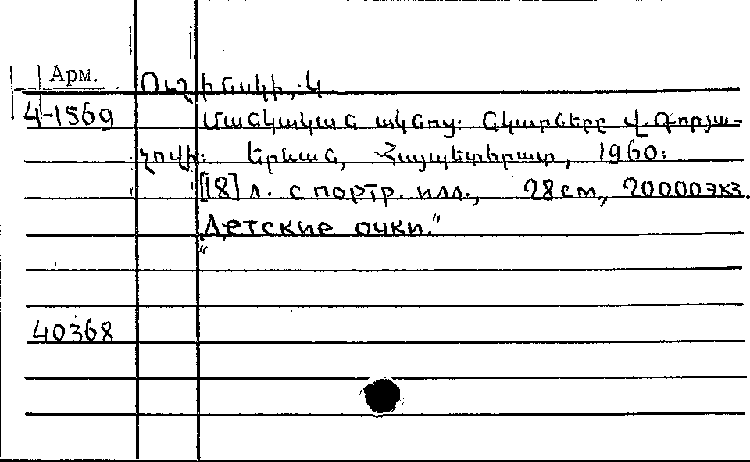 Арм.
Ուշինսկի, Կ
4-1569
Մանկական ակնոց: Նկարները Վ. Գորյա-
չովի: Երևան, Հայպետհրատ, 1960:
[18] л. с портр. илл., 28 см, 20000 экз.
„Детские очки."
40368